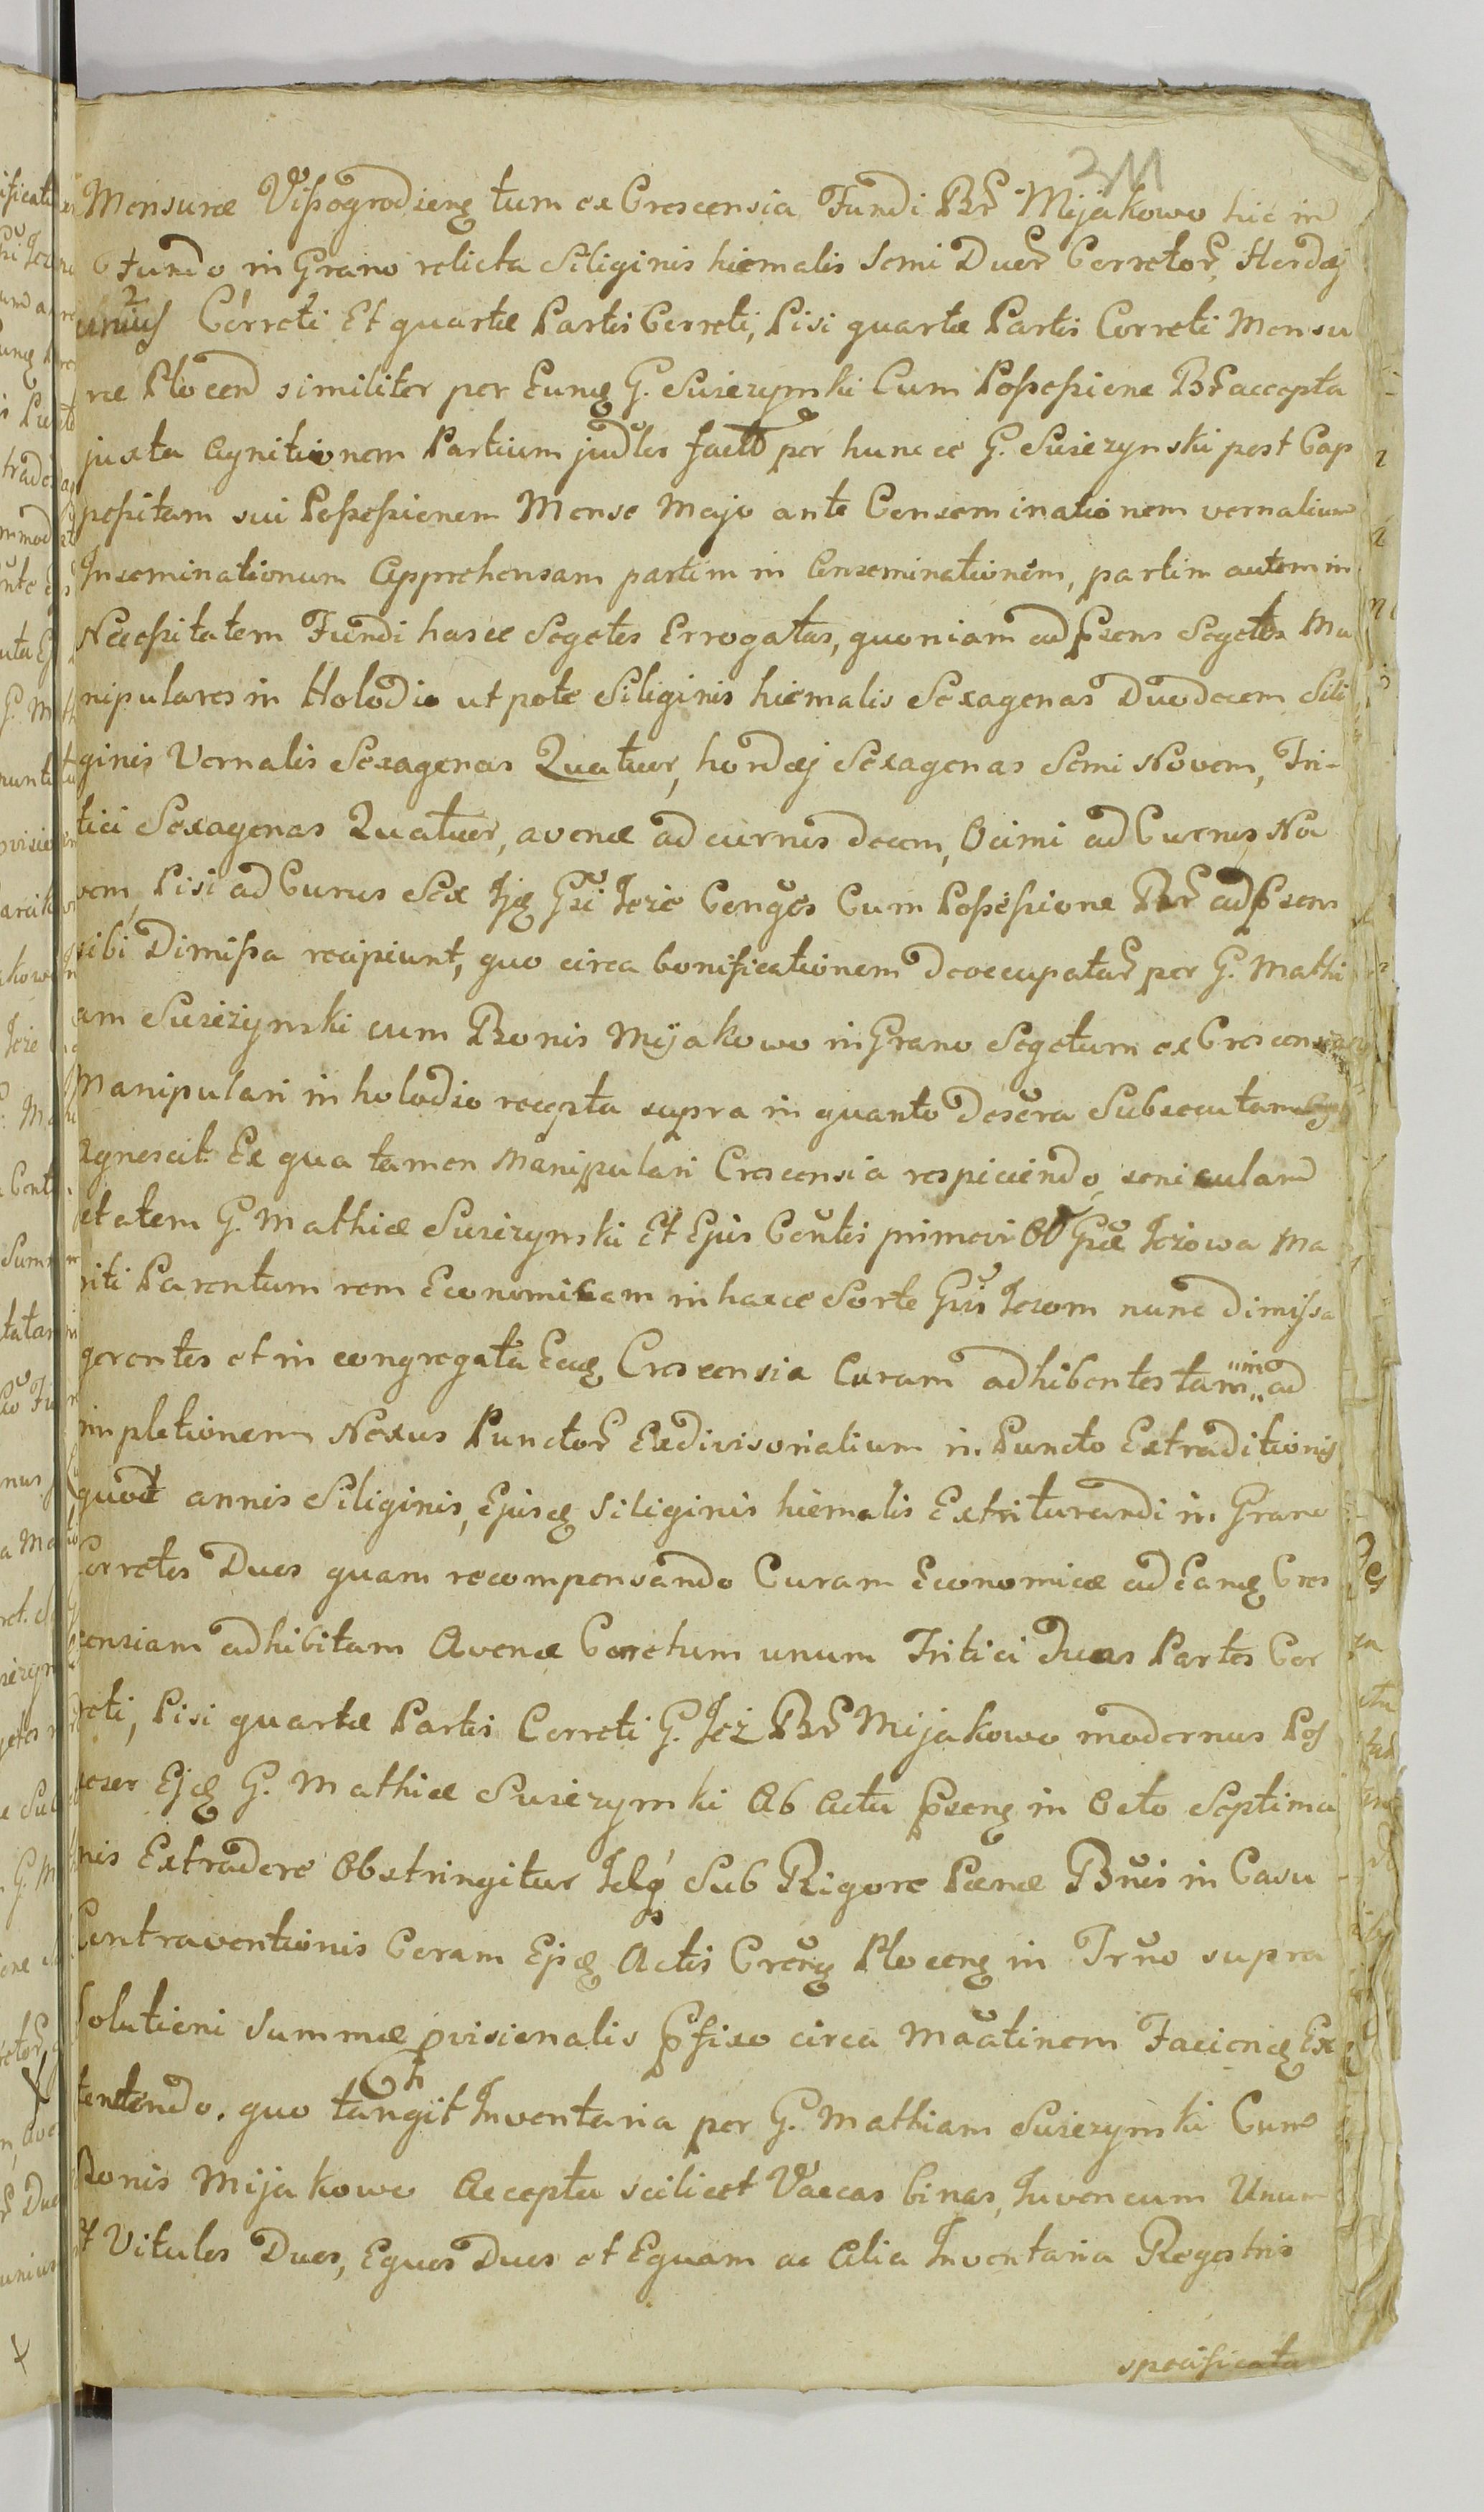 211
Mensuræ Vissogrodieng tum ex Crescensia Fundi Br Mijakowo hic in
Fundo in Grano relicta Siliginis hiemalis Semi Duor Corretor, Hordej
unius Correti Et quartæ Partis Correti, Pisi quartæ Partis Correti Mensu
ræ Plocen similiter per Eung G. Suszezymski Cum Possessione Br accepta
juxta Agnitionem Partium judles fact per hunc ce G. Suszezynski post Cap
pessitam sui Possessionem Mense Majo ante Conseminationem vernalium
Inseminationum Apprehensam partim in Conseminationem, partim autem in
Necessitatem Fundi hasce Segetes Errogatas, quoniam ad Psens Segetes Ma
nipulares in Holodio ut pote Siliginis hiemalis Sexagenas Duodecem Sili
ginis Vernalis Sexagenas Quatuor, hordej Sexagenas Semi Novem, Tri-
tici Sexagenas Quatuor, avenæ ad currus decem, Ocimi ad Currus No
vem, Pisi ad Currus Sex Ijq Gsi Jeże Conges Cum Possessione Br ad Psens
sibi Dimissa recipiunt, quo circa bonificationem deoccupatar per G. Mathi
am Suszezynski cum Bonis Mijakowo in Grano Segetum ex Crescensia
Manipulari in holodio recepta supra in quanto desera Subsecutam
Agnescit. Ex qua tamen Manipulari Crescensia respiciendo senicularem
etatem G. Mathiæ Suszezynski Et Ejus Contis primovi Ol Gsæ Jeżowa Ma
riti Parentum rem Economicam in hacce Sorte Gsis Jezom nunc dimissa
gerentes et in congregata Eaq Crescensia Curam adhibentes tam in ad
impletionem Nexus Punctor Exdivisorialium in Puncto Extraditionis
quot annis Siliginis, Ejusq Siliginis hiemalis Extriturandi in Grano
Corretos Duos quam recompensando Curam Economicæ ad Eamq Cres
censiam adhibitam Avenæ Corretum unum Tritici Duas Partes Cor
reti, Pisi quartæ Partis Correti G. Jeż Br Mijakowo modernus Pos
sesor Ejq G. Mathiæ Suszezymski Ab Actu pseng in Octo Septima
nis Extradere Obstringitur Idq Sub Rigore Pænæ Bnis in Casu
Contraventionis Coram Ejsq Actis Creng Ploceng in Trno supra
Solutioni Summæ pvisionalis Pfixo circa Maatinem Facieng Ex
tentendo. quo tangit Inventaria per G. Mathiam Suszezymski Cum
Bonis Mijakowo Accepta scilicet Vaccas binas, Juvencum Unum
et Vitulos Duos, Equos Duos et Equam ac Alia Inventaria Regestris
specificata